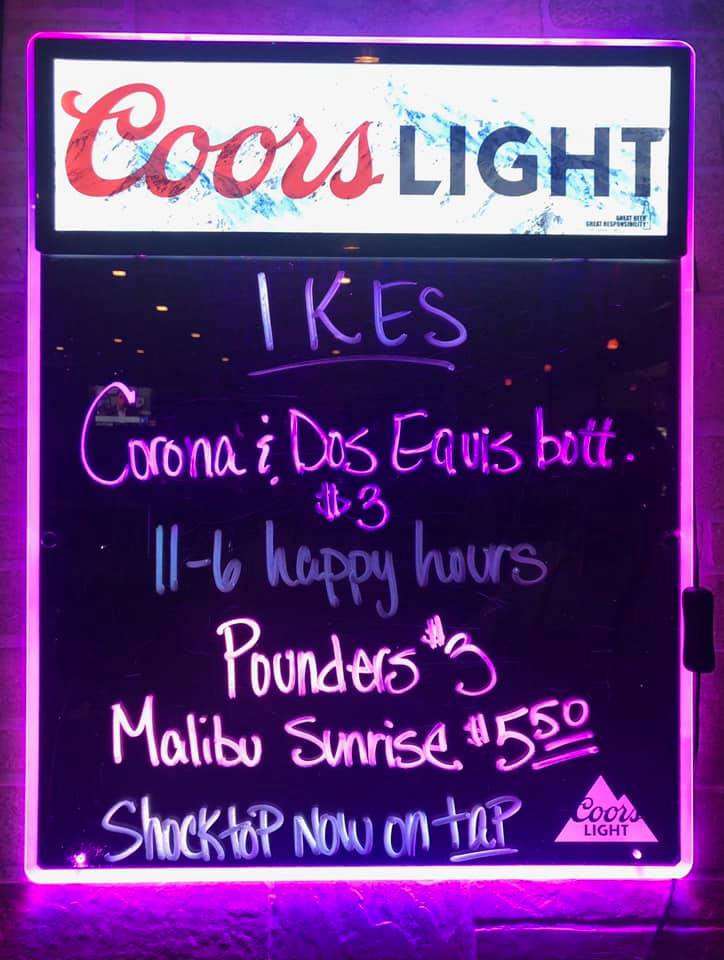 Coors LIGHT
GREAT BEER
GREAT RESPONSIBILITY
IKES
Corona & Dos Equis bott.
$3
11-6 happy hours
Pounders $3
Malibu Sunrise $5.50
Shocktop Now on tap
Coors
LIGHT